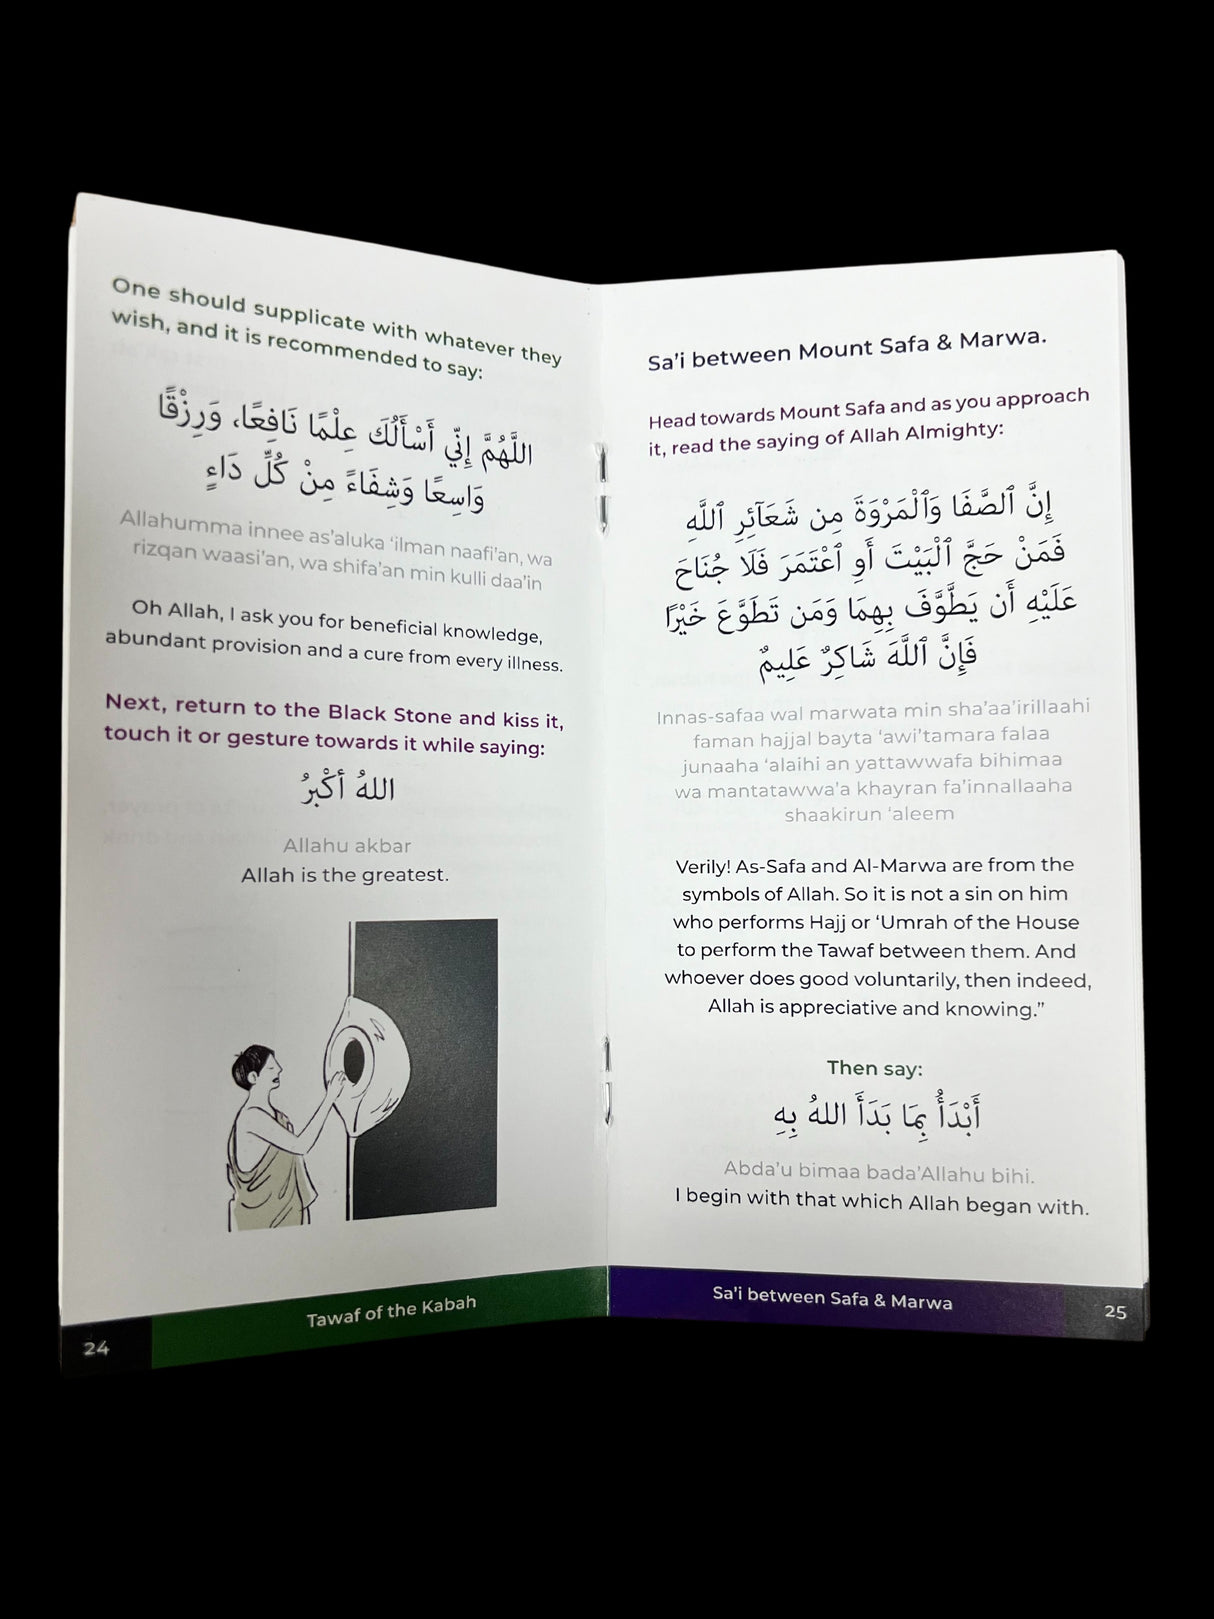 One should supplicate with whatever they
wish, and it is recommended to say:
اللَّهُمَّ إِنِّي أَسْأَلُكَ عِلْمًا نَافِعًا، وَرِزْقًا
وَاسِعًا وَشِفَاءً مِنْ كُلِّ دَاءٍ
Allahumma innee as'aluka ‘ilman naafi'an, wa
rizqan waasi'an, wa shifa'an min kulli daa'in
Oh Allah, I ask you for beneficial knowledge,
abundant provision and a cure from every illness.
Next, return to the Black Stone and kiss it,
touch it or gesture towards it while saying:
اللهُ أَكْبَرُ
Allahu akbar
Allah is the greatest.
Tawaf of the Kabah
24
Sa'i between Mount Safa & Marwa.
Head towards Mount Safa and as you approach
it, read the saying of Allah Almighty:
إِنَّ ٱلصَّفَا وَٱلْمَرْوَةَ مِن شَعَآئِرِ ٱللَّهِ
فَمَنْ حَجَّ ٱلْبَيْتَ أَوِ ٱعْتَمَرَ فَلَا جُنَاحَ
عَلَيْهِ أَن يَطَّوَّفَ بِهِمَا وَمَن تَطَوَّعَ خَيْرًا
فَإِنَّ ٱللَّهَ شَاكِرٌ عَلِيمٌ
Innas-safaa wal marwata min sha'aa'irillaahi
faman hajjal bayta ‘awi'tamara falaa
junaaha ‘alaihi an yattawwafa bihimaa
wa mantatawwa'a khayran fa'innallaaha
shaakirun ‘aleem
Verily! As-Safa and Al-Marwa are from the
symbols of Allah. So it is not a sin on him
who performs Hajj or ‘Umrah of the House
to perform the Tawaf between them. And
whoever does good voluntarily, then indeed,
Allah is appreciative and knowing.”
Then say:
أَبْدَأُ بِمَا بَدَأَ اللهُ بِهِ
Abda'u bimaa bada'Allahu bihi.
I begin with that which Allah began with.
Sa'i between Safa & Marwa
25